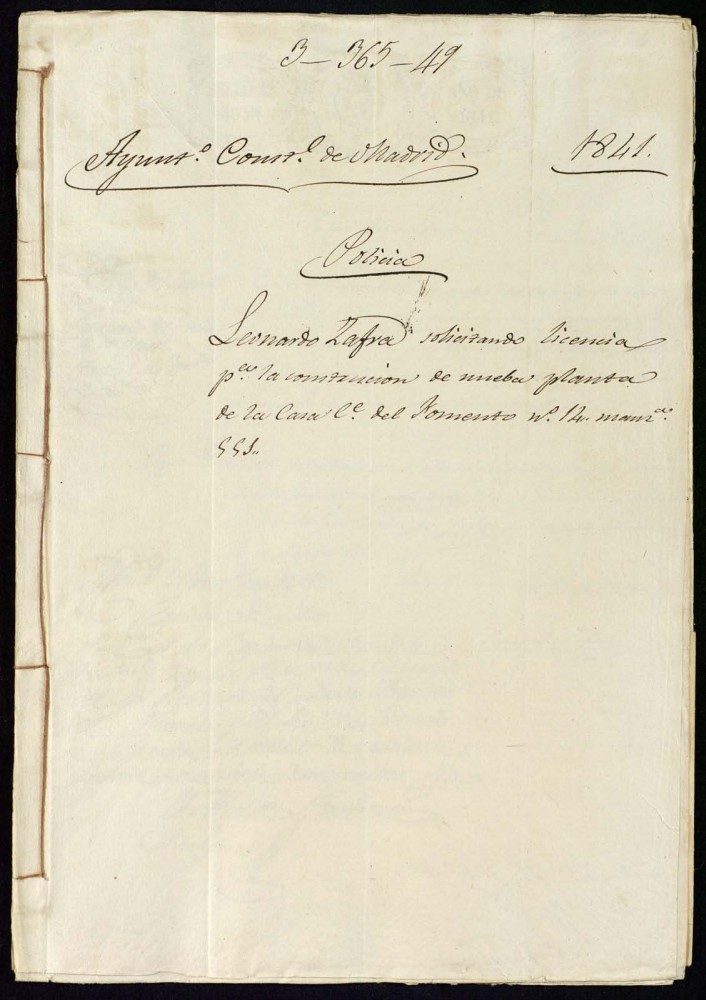 3-365-49
Ayuntº. Constl. de Madrid.
1841.
Policia
Leonardo Zafra solicitando licencia
pª. la construccion de nueba planta
de la Casa Ce. del Fomento nº. 14. manzª.
551.